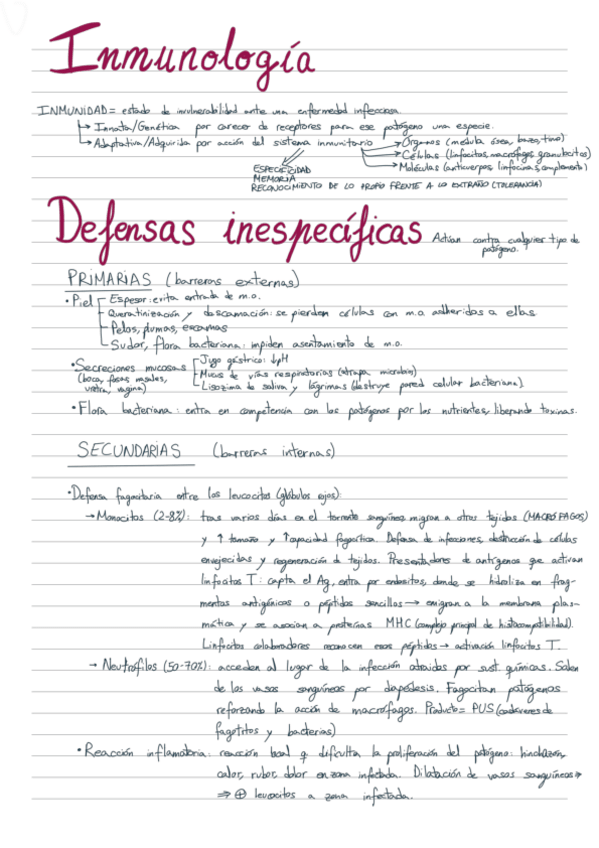 Inmunología
INMUNIDAD = estado de invulnerabilidad ante una enfermedad infecciosa.
↳ Innata/Genética por carecer de receptores para ese patógeno una especie.
↳ Adaptativa/Adquirida por acción del sistema inmunitario → Órganos (médula ósea, bazo, timo)
→ Células (linfocitos, macrófagos, granulocitos)
→ Moléculas (anticuerpos, linfocinas, complemento)
ESPECIFICIDAD
MEMORIA
RECONOCIMIENTO DE LO PROPIO FRENTE A LO EXTRAÑO (TOLERANCIA)
Defensas inespecíficas Actúan contra cualquier tipo de
patógeno.
PRIMARIAS (barreras externas)
• Piel Espesor: evita entrada de m.o.
Queratinización y descamación: se pierden células con m.o. adheridos a ellas
Pelos, plumas, escamas
Sudor, flora bacteriana: impiden asentamiento de m.o.
• Secreciones mucosas Jugo gástrico: ↓pH
(boca, fosas nasales, Mucus de vías respiratorias (atrapa microbios)
uretra, vagina) Lisozima de saliva y lágrimas (destruye pared celular bacteriana)
• Flora bacteriana: entra en competencia con los patógenos por los nutrientes, liberando toxinas.
SECUNDARIAS (barreras internas)
• Defensa fagocitaria entre los leucocitos (glóbulos rojos):
→ Monocitos (2-8%): tras varios días en el torrente sanguíneo, migran a otros tejidos (MACRÓFAGOS)
y ↑ tamaño y ↑ capacidad fagocítica. Defensa de infecciones, destrucción de células
envejecidas y regeneración de tejidos. Presentadores de antígenos que activan
linfocitos T: capta el Ag, entra por endocitosis, donde se hidroliza en frag-
mentos antigénicos o péptidos sencillos → emigran a la membrana plas-
mática y se asocian a proteínas MHC (complejo principal de histocompatibilidad).
Linfocitos colaboradores reconocen esos péptidos → activación linfocitos T.
→ Neutrófilos (50-70%): acceden al lugar de la infección atraídos por sust. químicas. Salen
de los vasos sanguíneos por diapédesis. Fagocitan patógenos
reforzando la acción de macrófagos. Producto = PUS (cadáveres de
fagocitos y bacterias)
• Reacción inflamatoria: reacción local q dificulta la proliferación del patógeno: hinchazón,
calor, rubor, dolor en zona infectada. Dilatación de vasos sanguíneos ⇒
⇒ ⊕ leucocitos a zona infectada.